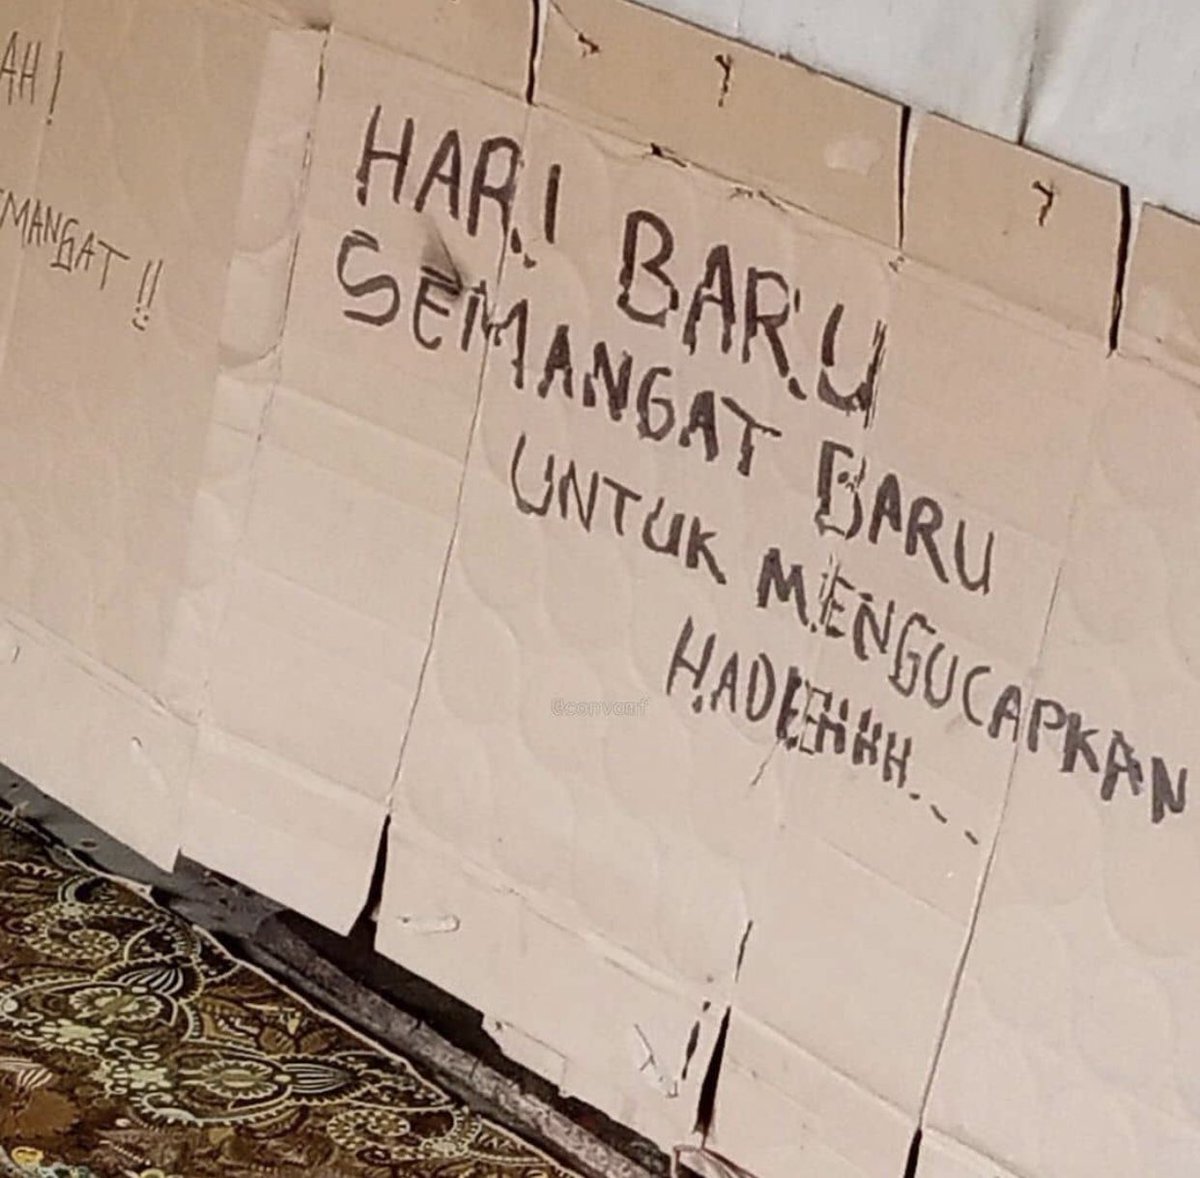 AH!
EMANGAT!!
HARI BARU
SEMANGAT BARU
UNTUK MENGUCAPKAN
HADEEHHH....